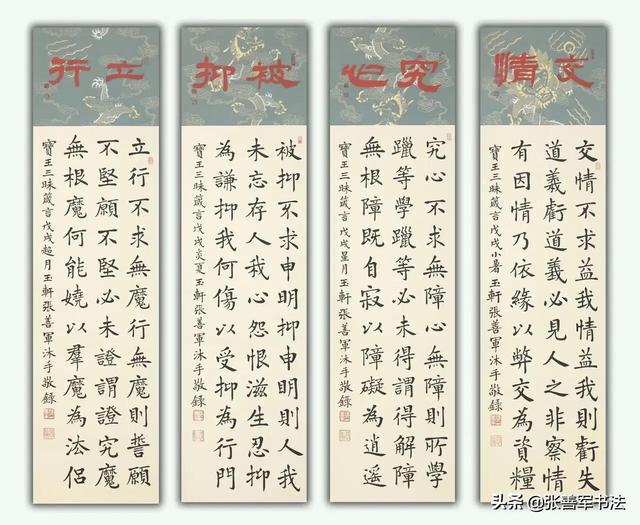 交情
交情不求益我情益我則虧失
道義虧道義必見人之非察情
有因情乃依緣以弊交為資糧
寶王三昧箴言戊戌小暑玉軒張善軍沐手敬録
究心
究心不求無障心無障則所學
躐等學躐等必未得謂得解障
無根障既自寂以障礙為逍遥
寶王三昧箴言戊戌星月玉軒張善軍沐手敬録
被抑
被抑不求申明抑申明則人我
未忘存人我心怨恨滋生忍抑
為謙抑我何傷以受抑為行門
寶王三昧箴言戊戌炎夏玉軒張善軍沐手敬録
立行
立行不求無魔行無魔則誓願
不堅願不堅必未證謂證究魔
無根魔何能嬈以羣魔為法侶
寶王三昧箴言戊戌超月玉軒張善軍沐手敬録
头条 @张善军书法